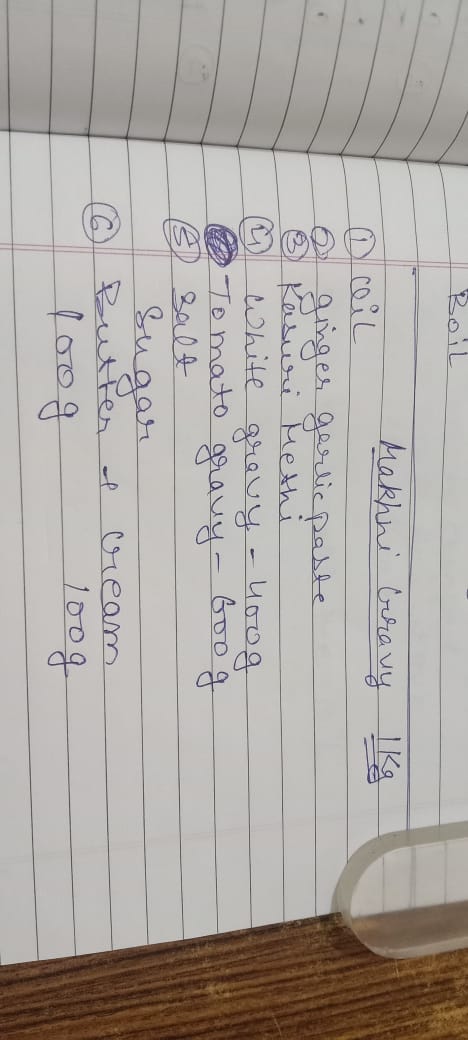 Boil
Makhni Gravy 1Kg
① oil
② ginger garlic paste
③ Kasuri Methi
④ White gravy - 400g
Tomato gravy - 600g
⑤ Salt
Sugar
⑥ Butter + Cream
100g 100g